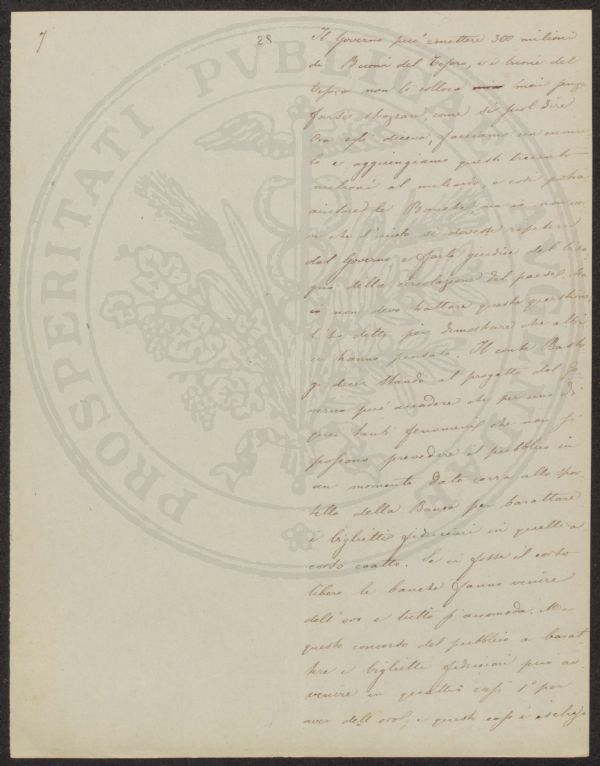 7
28
Il Governo può emettere 300 milioni
di Buoni del Tesoro, e i buoni del
Tesoro non li colloca mai
come si può dire
Ora egli diceva, facciamo un
lo e aggiungiamo questi trecento
milioni al miliardo, e così potrà
aiutare le Banche, ma io non
che l'aiuto si dovesse ripetere
dal Governo e farlo giudice del biso
gno della circolazione del paese. Ma
io non devo trattare questa questione,
l'ho detto per dimostrare che altri
ci hanno pensato. Il conte
dice: Stando al progetto del Go
verno può accadere che per uno di
quei tanti fenomeni che non si
possono prevedere il pubblico in
un momento dato corra allo spor
tello della Banca per barattare
i biglietti fiduciari in quelli a
corso coatto. Se ci fosse il corso
libero le banche fanno venire
dell'oro e tutto s'accomoda. Ma
questo concorso del pubblico a barat
tare i biglietti fiduciari può av
venire in quattro casi 1º per
aver dell'oro, e questo caso è
PROSPERITATI PUBLICAE AUGENDAE